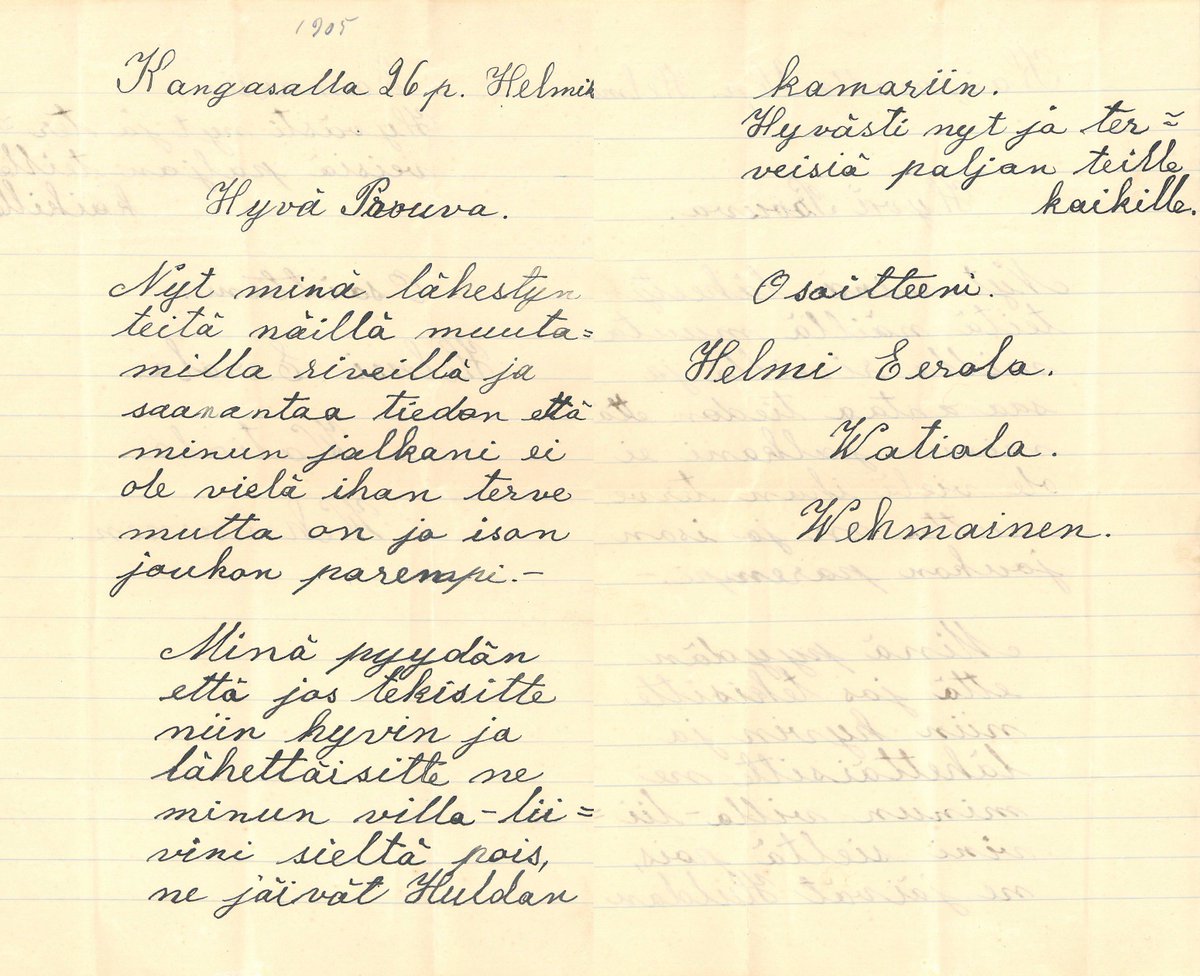 1905
Kangasalla 26 p. Helmik
Hyvä Prouva.
Nyt minä lähestyn
teitä näillä muuta=
milla riveillä ja
saan antaa tiedon että
minun jalkani ei
ole vielä ihan terve
mutta on jo ison
joukon parempi.—
Minä pyydän
että jos tekisitte
niin hyvin ja
lähettäisitte ne
minun villa-lii=
vini sieltä pois,
ne jäivät Huldan
kamariin.
Hyvästi nyt ja ter=
veisiä paljan teille
kaikille.
Osoitteeni.
Helmi Eerola.
Watiala.
Wehmainen.